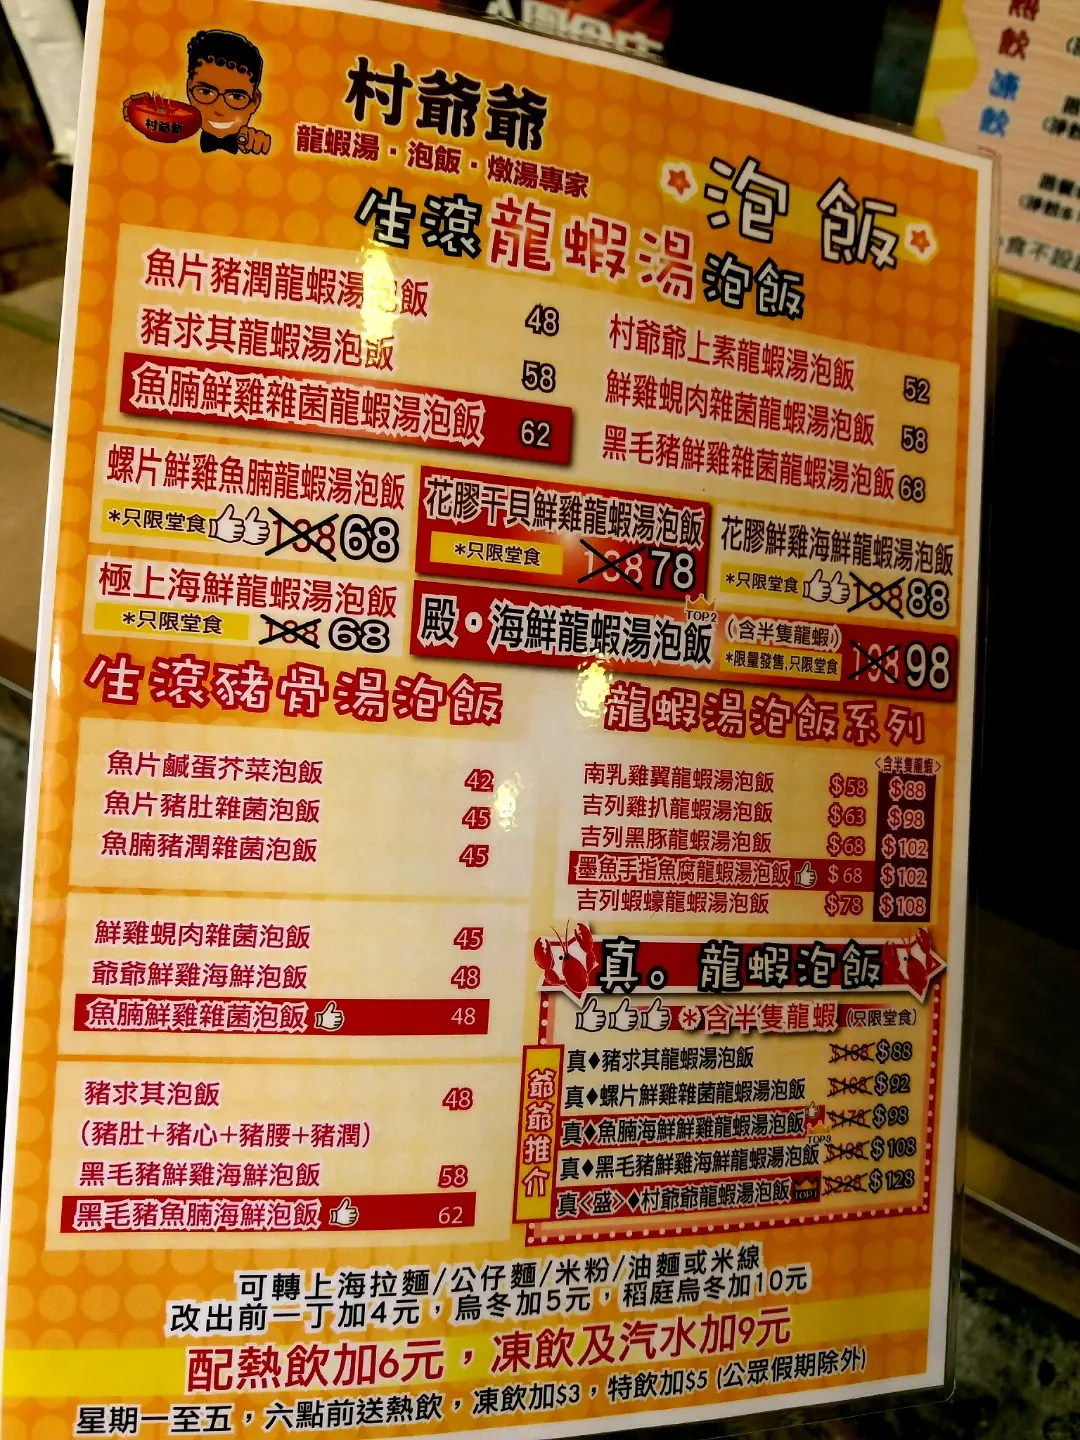 村爺爺
村爺爺
龍蝦湯·泡飯·燉湯專家
泡飯
生滾龍蝦湯泡飯
魚片豬潤龍蝦湯泡飯 48
豬求其龍蝦湯泡飯 58
魚腩鮮雞雜菌龍蝦湯泡飯 62
村爺爺上素龍蝦湯泡飯 52
鮮雞蜆肉雜菌龍蝦湯泡飯 58
黑毛豬鮮雞雜菌龍蝦湯泡飯 68
螺片鮮雞魚腩龍蝦湯泡飯
*只限堂食 138 68
花膠干貝鮮雞龍蝦湯泡飯
*只限堂食 138 78
花膠鮮雞海鮮龍蝦湯泡飯
*只限堂食 138 88
極上海鮮龍蝦湯泡飯
*只限堂食 138 68
殿·海鮮龍蝦湯泡飯 TOP2 (含半隻龍蝦)
*限量發售,只限堂食 198 98
生滾豬骨湯泡飯
魚片鹹蛋芥菜泡飯 42
魚片豬肚雜菌泡飯 45
魚腩豬潤雜菌泡飯 45
鮮雞蜆肉雜菌泡飯 45
爺爺鮮雞海鮮泡飯 48
魚腩鮮雞雜菌泡飯 48
豬求其泡飯 48
(豬肚+豬心+豬腰+豬潤)
黑毛豬鮮雞海鮮泡飯 58
黑毛豬魚腩海鮮泡飯 62
龍蝦湯泡飯系列
<含半隻龍蝦>
南乳雞翼龍蝦湯泡飯 $58 $88
吉列雞扒龍蝦湯泡飯 $63 $98
吉列黑豚龍蝦湯泡飯 $68 $102
墨魚手指魚腐龍蝦湯泡飯 $68 $102
吉列蝦蠔龍蝦湯泡飯 $78 $108
真。龍蝦泡飯
*含半隻龍蝦 (只限堂食)
爺爺推介
真♦豬求其龍蝦湯泡飯 $88
真♦螺片鮮雞雜菌龍蝦湯泡飯 $92
真♦魚腩海鮮鮮雞龍蝦湯泡飯 $178 $98
TOP3
真♦黑毛豬鮮雞海鮮龍蝦湯泡飯 $198 $108
真<盛>♦村爺爺龍蝦湯泡飯 TOP1 $228 $128
可轉上海拉麵/公仔麵/米粉/油麵或米線
改出前一丁加4元，烏冬加5元，稻庭烏冬加10元
配熱飲加6元，凍飲及汽水加9元
星期一至五，六點前送熱飲，凍飲加$3，特飲加$5 (公眾假期除外)
熱飲
凍飲
食不設